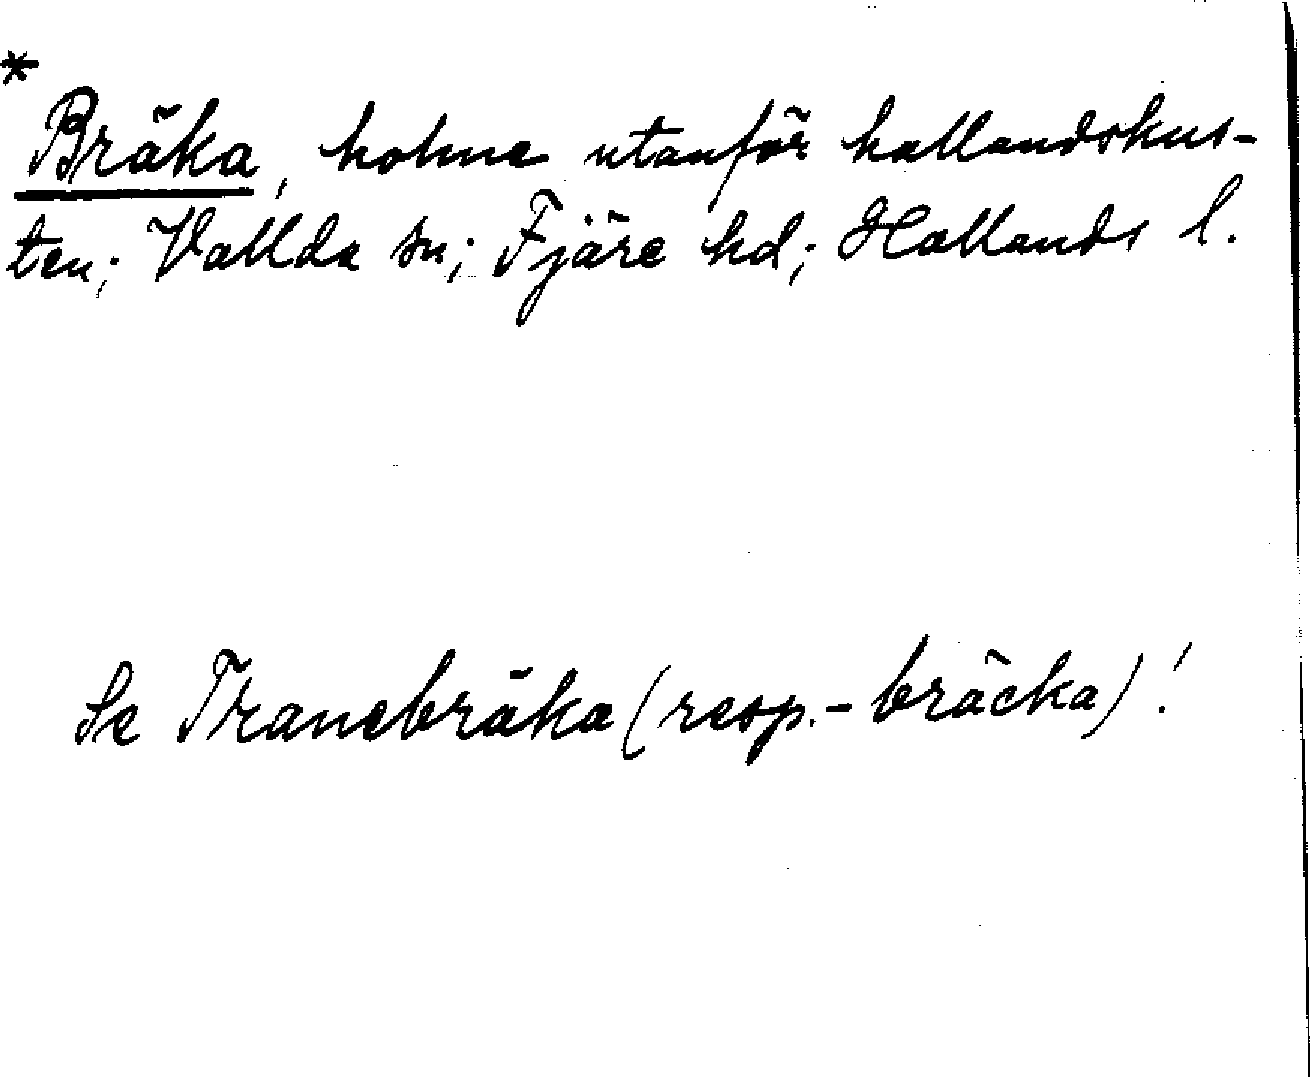 *
Bräka, holme utanför hallandskus-
ten; Vallda sn; Fjäre hd; Hallands l.
Se Tranebräka (resp. -bräcka)!